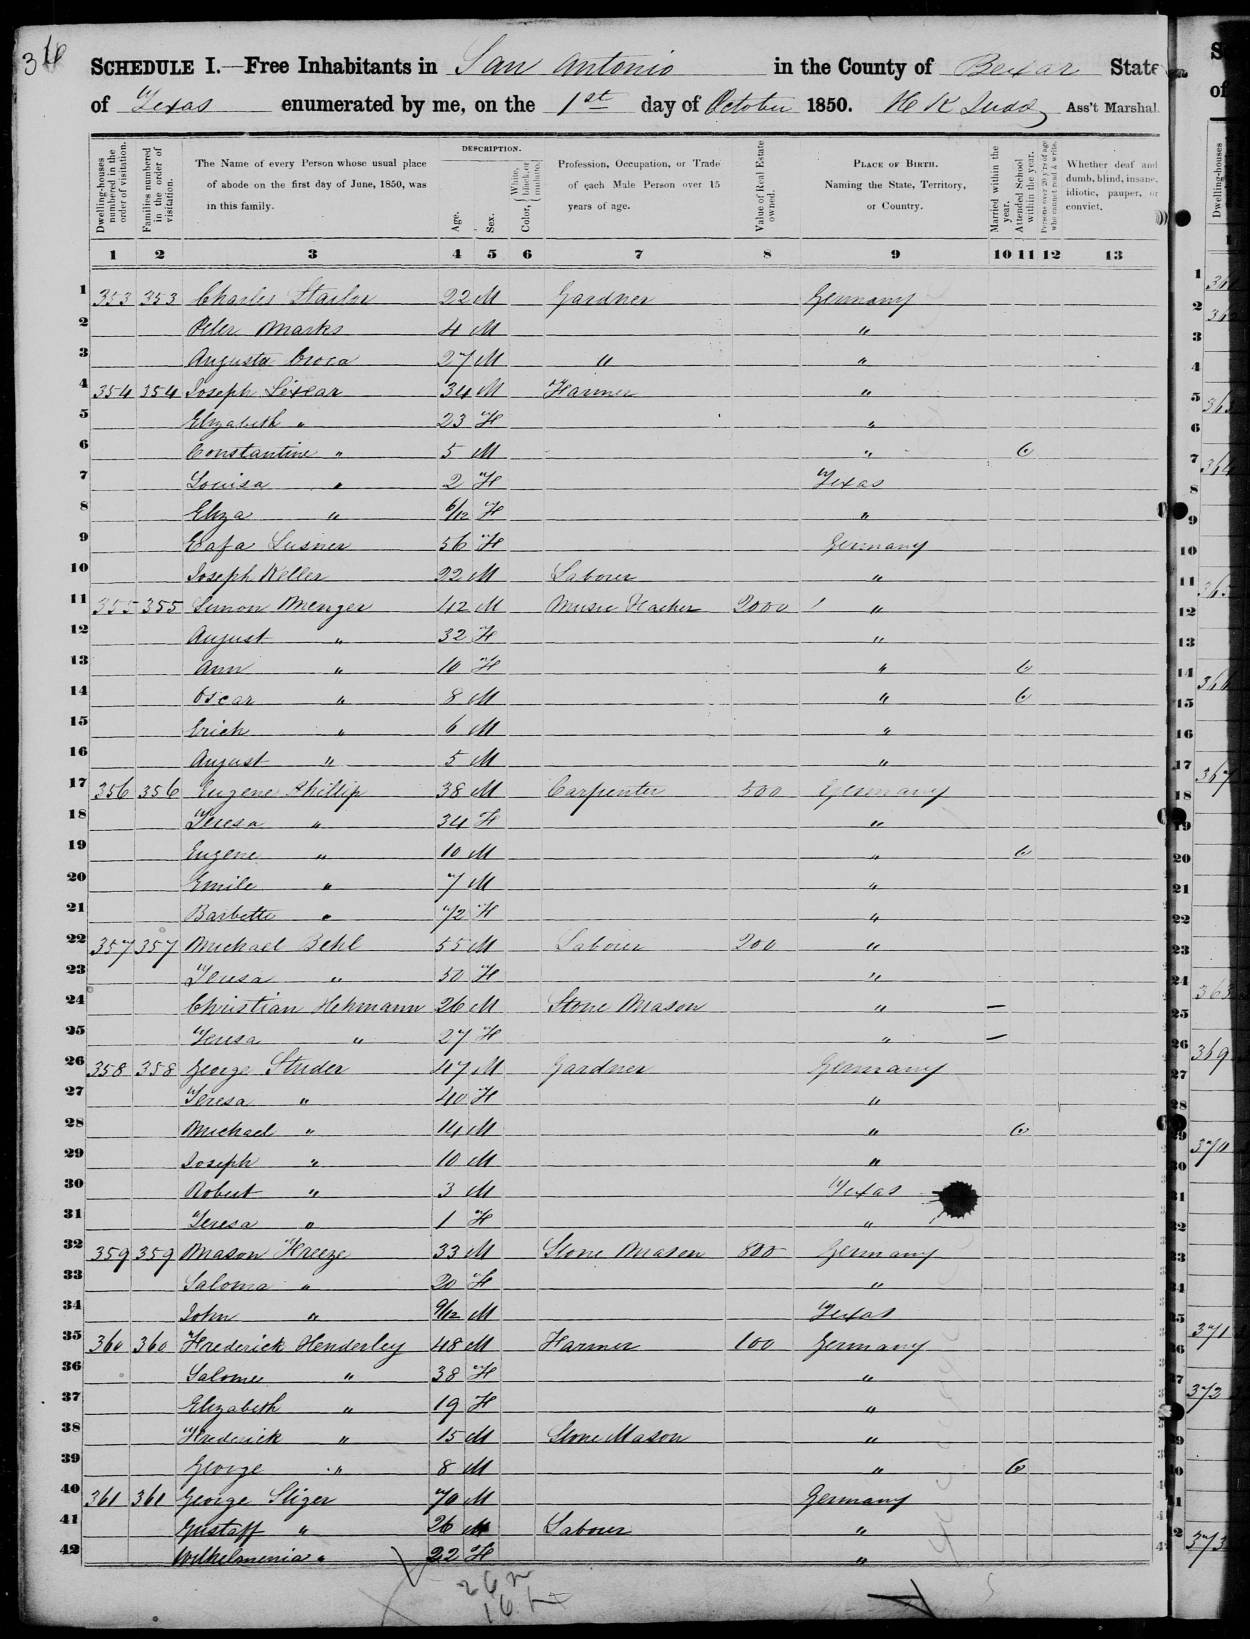 316
SCHEDULE I.—Free Inhabitants in San Antonio in the County of Bexar State
of Texas enumerated by me, on the 1st day of October 1850. H K Judd Ass't Marshal.
DESCRIPTION.
Dwelling-houses numbered in the order of visitation.
Families numbered in the order of visitation.
The Name of every Person whose usual place of abode on the first day of June, 1850, was in this family.
Age.
Sex.
Color, { White, black, or mulatto.
Profession, Occupation, or Trade of each Male Person over 15 years of age.
Value of Real Estate owned.
PLACE OF BIRTH. Naming the State, Territory, or Country.
Married within the year.
Attended School within the year.
Persons over 20 y'rs of age who cannot read & write.
Whether deaf and dumb, blind, insane, idiotic, pauper, or convict.
1 2 3 4 5 6 7 8 9 10 11 12 13
1 353 353 Charles 22 M Gardner Germany
2 Peter Marks 4 M "
3 Augusta 27 M " "
4 354 354 Joseph 34 M Farmer "
5 Elizabeth " 23 F "
6 Constantine " 5 M " 6
7 Louisa " 2 F Texas
8 Eliza " 6/12 F "
9 Eafa Lusner 56 F Germany
10 Joseph Keller 22 M Laborer "
11 355 355 Simon Menger 42 M Music Teacher 2000 "
12 August " 32 F "
13 Ann " 10 F " 6
14 Oscar " 8 M " 6
15 Erich " 6 M "
16 August " 5 M "
17 356 356 Eugene Phillip 38 M Carpenter 500 Germany
18 Teresa " 34 F "
19 Eugene " 10 M " 6
20 Emile " 7 M "
21 Barbette " F "
22 357 357 Michael Behl 55 M Laborer 200 "
23 Teresa " 50 F "
24 Christian Hehmann 26 M Stone Mason " —
25 Teresa " 27 F " —
26 358 358 George Studer 47 M Gardner Germany
27 Teresa " 40 F "
28 Michael " 14 M " 6
29 Joseph " 10 M "
30 Robert " 3 M Texas
31 Teresa " 1 F "
32 359 359 Mason Freeze 33 M Stone Mason 800 Germany
33 Saloma " 20 F "
34 John " 9/12 M Texas
35 360 360 Frederick Henderley 48 M Farmer 100 Germany
36 Salome " 38 F "
37 Elizabeth " 19 F "
38 Frederick " 15 M Stone Mason "
39 George " 8 M " 6
40 361 361 George Sliger 70 M Germany
41 Gustaff " 26 M Laborer "
42 Wilhelmenia " 22 F "
26 m
16 f